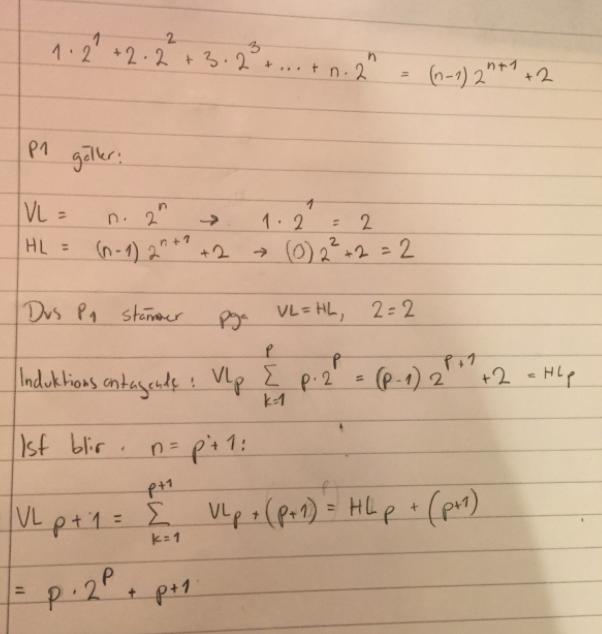 1·2¹ + 2·2² + 3·2³ + ... + n·2ⁿ = (n-1) 2ⁿ⁺¹ + 2
P1 gäller:
VL = n·2ⁿ → 1·2¹ = 2
HL = (n-1) 2ⁿ⁺¹ + 2 → (0) 2² + 2 = 2
Dvs P1 stämmer pga VL = HL, 2 = 2
Induktionsantagende: VLₚ ∑ₖ₌₁ᵖ p·2ᵖ = (p-1) 2ᵖ⁺¹ + 2 = HLₚ
Ist blir. n = p+1:
VL p+1 = ∑ₖ₌₁ᵖ⁺¹ VLₚ + (p+1) = HLₚ + (p+1)
= p·2ᵖ + p+1